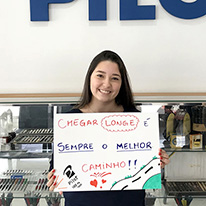 PILO
CHEGAR LONGE É
SEMPRE O MELHOR
CAMINHO!!